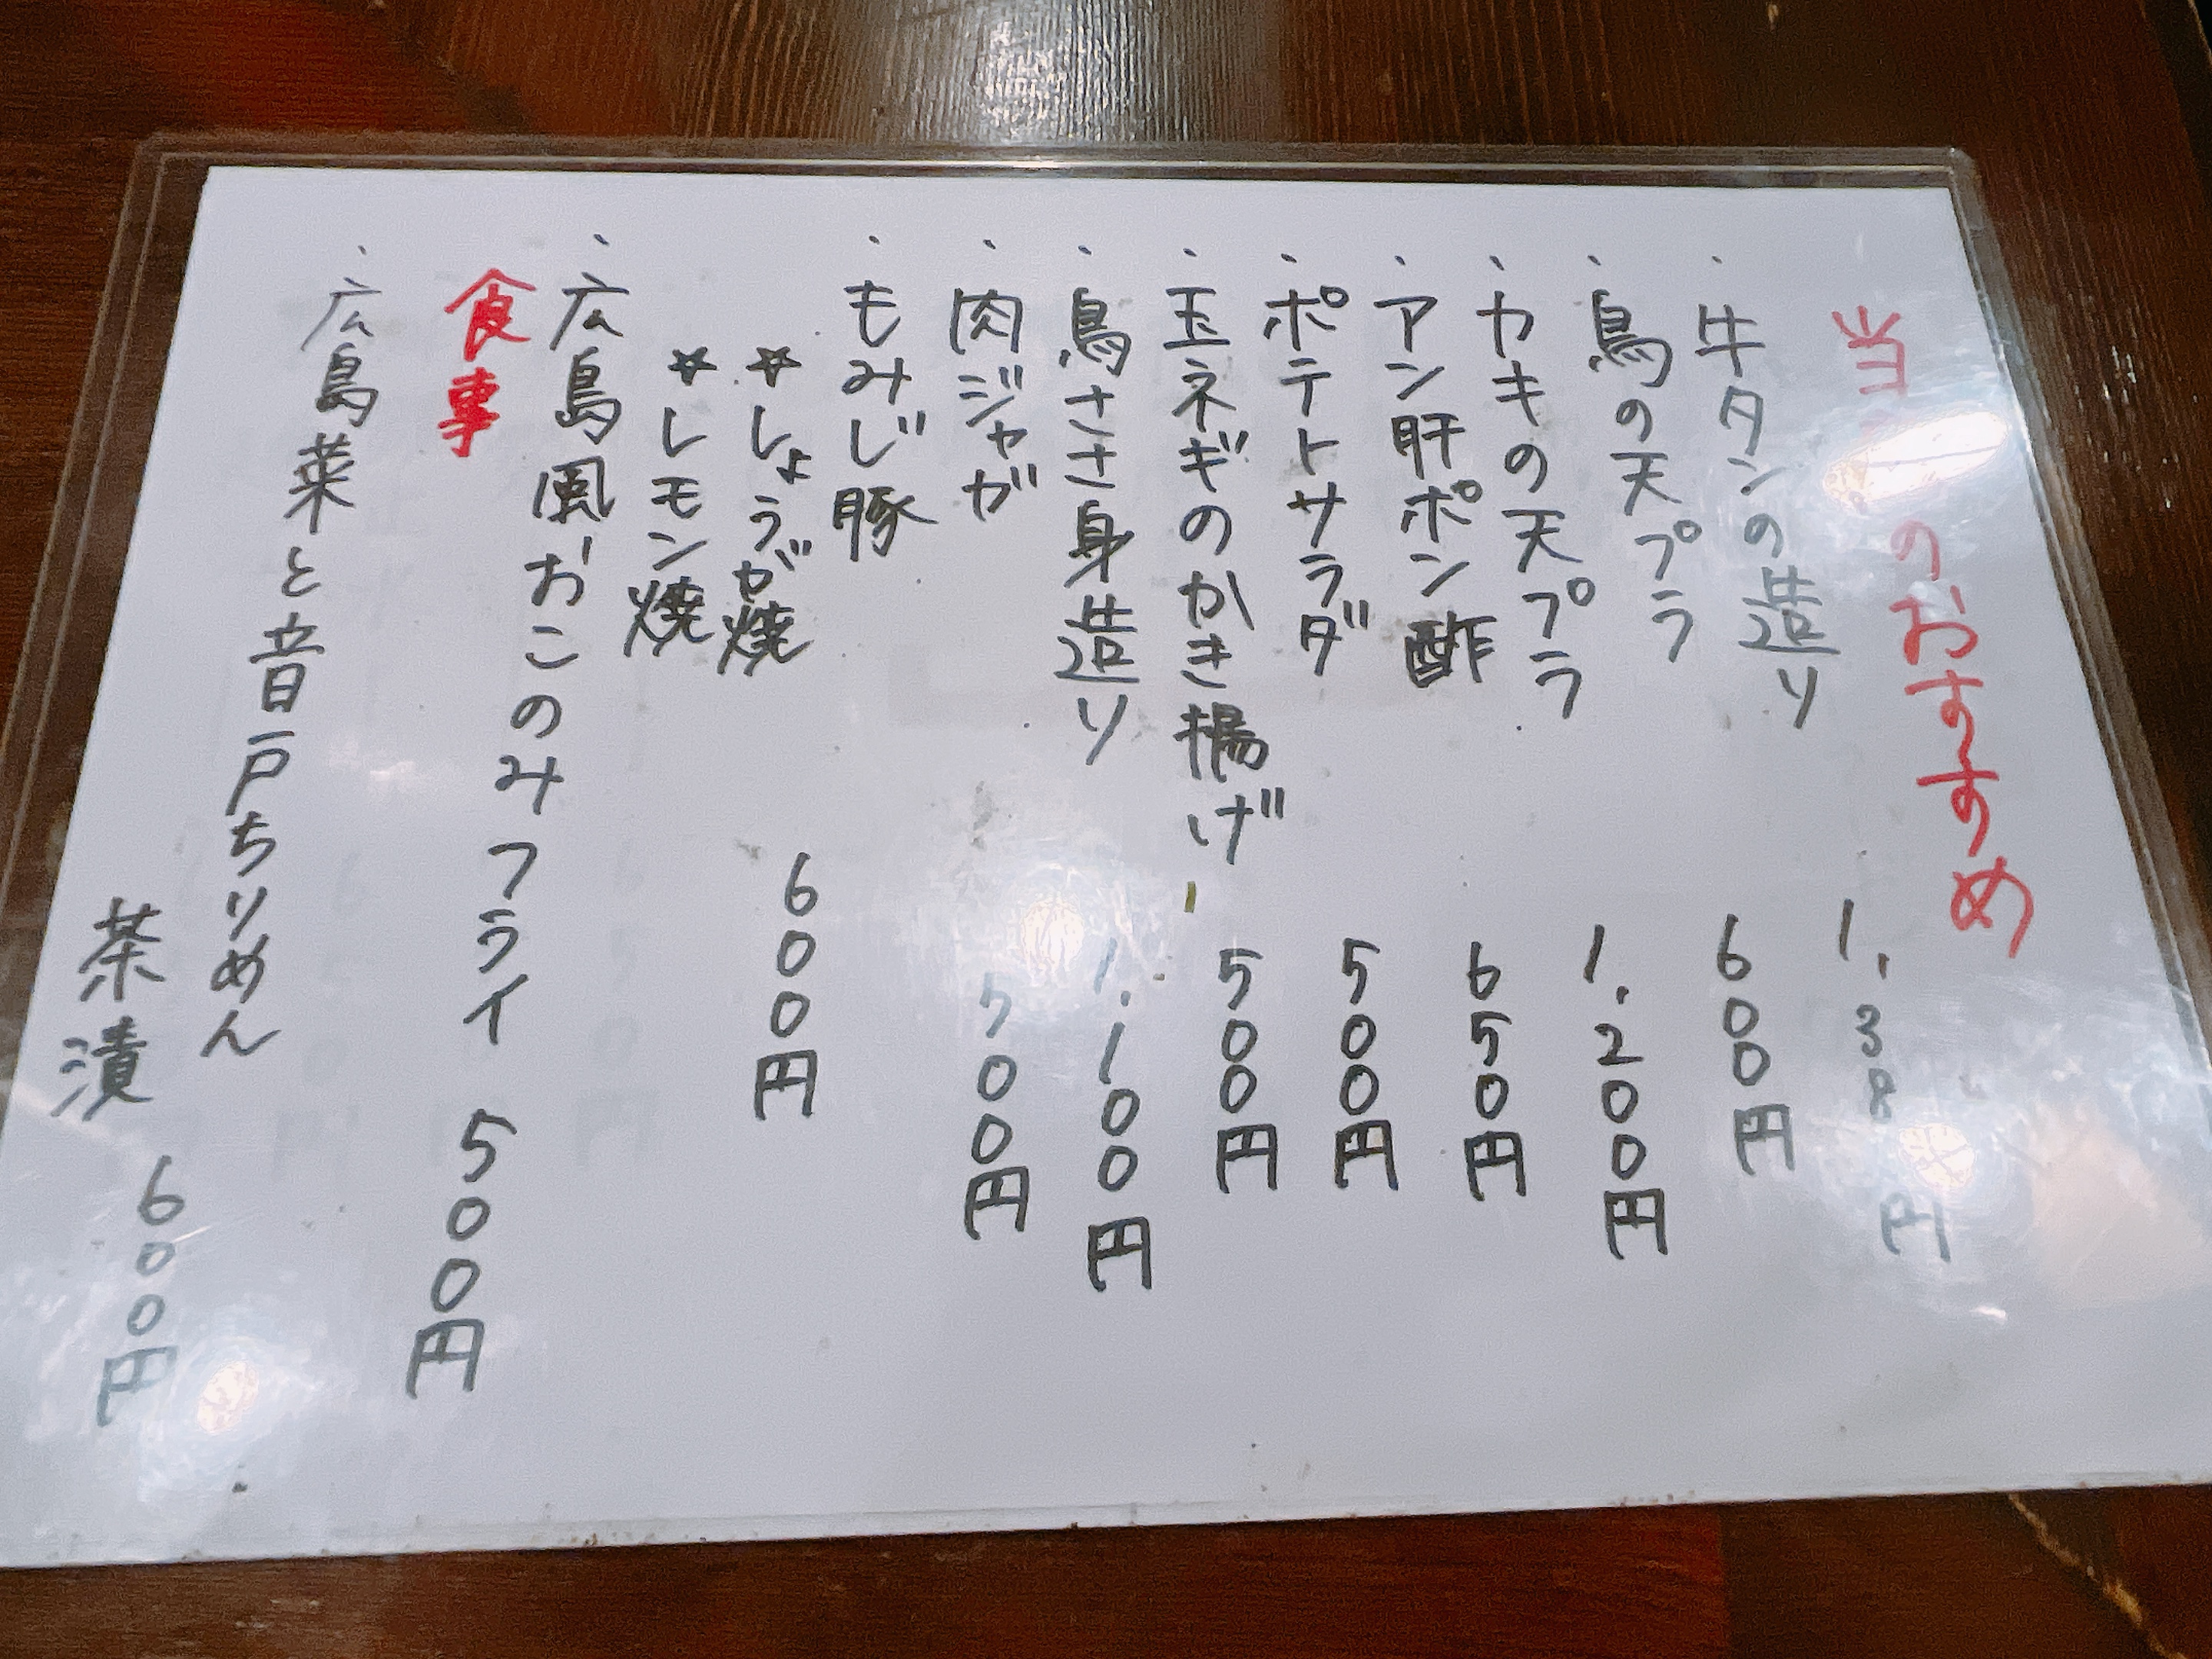 当 のおすすめ
・牛タンの造り 1,38 円
・鳥の天プラ 600円
・カキの天プラ 1,200円
・アン肝ポン酢 650円
・ポテトサラダ 500円
・玉ネギのかき揚げ 500円
・鳥ささ身造り 1,100円
・肉ジャガ 500円
・もみじ豚
☆しょうが焼 600円
☆レモン焼
・広島風おこのみフライ 500円
食事
・広島菜と音戸ちりめん
茶漬 600円